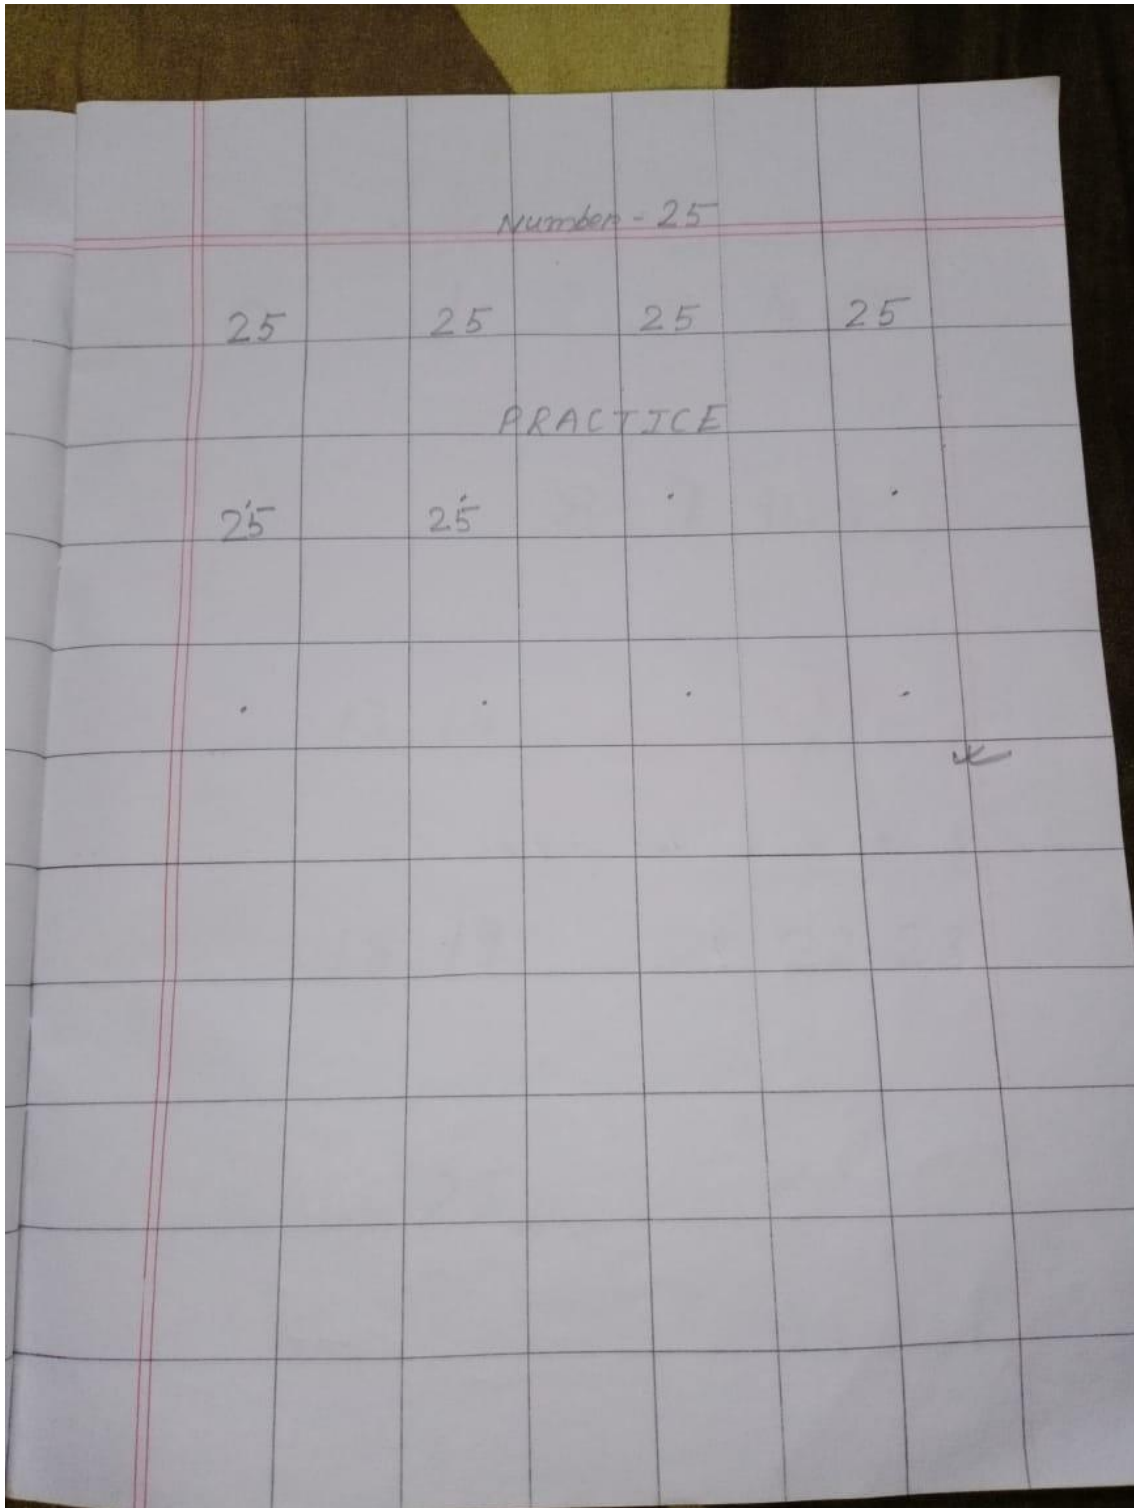 Number - 25
25 25 25 25
PRACTICE
25 25 . .
. . . .